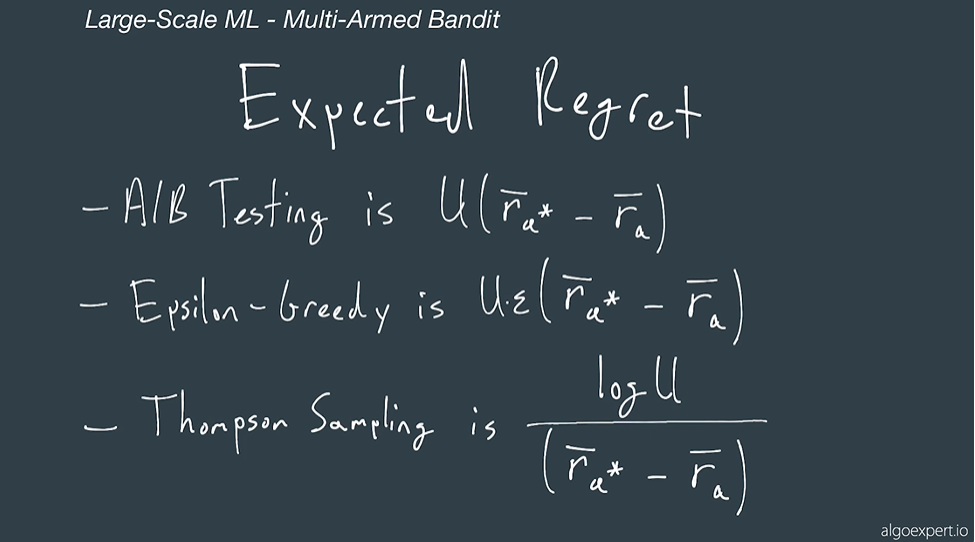 Large-Scale ML - Multi-Armed Bandit
Expected Regret
- A/B Testing is U(r̅ₐ* - r̅ₐ)
- Epsilon-Greedy is U·ε(r̅ₐ* - r̅ₐ)
- Thompson Sampling is log U / (r̅ₐ* - r̅ₐ)
algoexpert.io